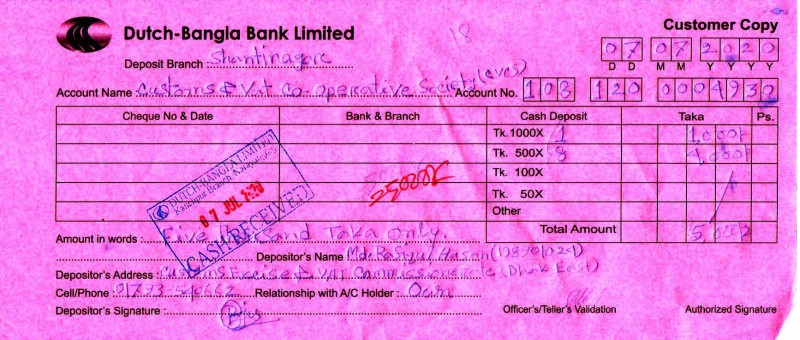 Dutch-Bangla Bank Limited
Customer Copy
18
07 07 2020
D D M M Y Y Y Y
Deposit Branch : Shantinagar
Account Name : Customs & Vat Co-operative Society (eves) Account No. 108 120 0004930
Cheque No & Date Bank & Branch Cash Deposit Taka Ps.
Tk. 1000X 1 1,000/-
Tk. 500X 8 4,000/-
Tk. 100X
Tk. 50X
Other
Total Amount 5,000/-
25000/-
DUTCH-BANGLA BANK LIMITED
07 JUL 2020
CASH RECEIVED
Amount in words : Five Thousand Taka Only.
Depositor's Name Md. Hasan
Depositor's Address : Customs Excise & VAT Commissionerate (Dhak East)
Cell/Phone 01773-540662 Relationship with A/C Holder : Own
Depositor's Signature :
Officer's/Teller's Validation Authorized Signature